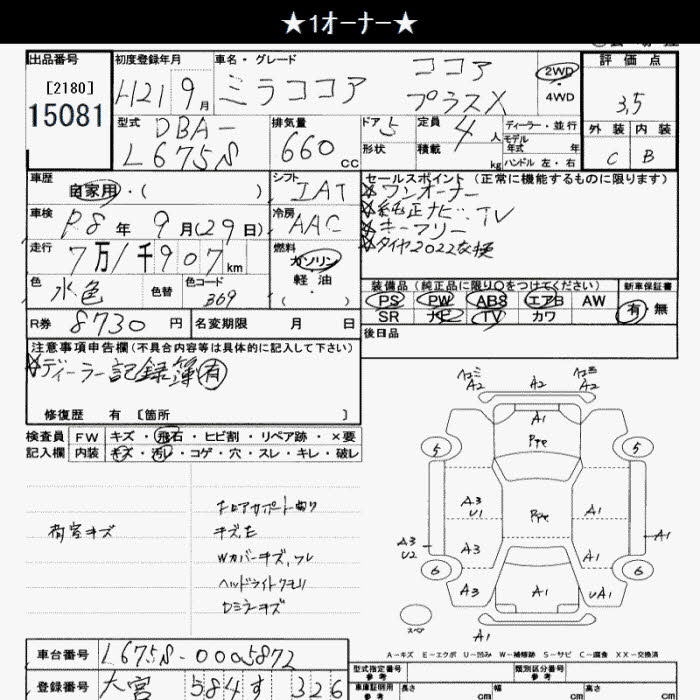 ★1ｵｰﾅｰ★
出品番号
[2180]
15081
初度登録年月
H21 9月
車名・グレード
ミラココア
ココア
プラスX
2WD
4WD
評価点
3.5
外装 内装
C B
型式
DBA-
L675S
排気量
660 cc
ドア 5
形状
定員 4 人
積載 kg
ディーラー・並行
モデル
年式 年
ハンドル 左・右
車歴
自家用・( )
シフト
IAT
車検
R8 年 9 月(29日)
冷房
AAC
走行
7万1千907 km
燃料
ガソリン
軽油
( )
色
水色
色替
色コード
369
R券 8730 円
名変期限 月 日
セールスポイント (正常に機能するものに限ります)
ワンオーナー
純正ナビ・TV
キーフリー
タイヤ2022交換
装備品 (純正品に限り○をつけてください)
新車保証書
PS PW ABS エアB AW
SR ナビ TV カワ
有・無
後日品
注意事項申告欄 (不具合内容等は具体的に記入して下さい)
ディーラー記録簿有
修復歴 有 [箇所 ]
検査員
記入欄
FW キズ・飛石・ヒビ割・リペア跡・×要
内装 キズ・汚レ・コゲ・穴・スレ・キレ・破レ
荷室キズ
キズ大
Wカバーキズ,ワレ
ヘッドライトクモリ
Dミラーキズ
A2
A2
A2
A1
PPe
5
5
A3
U1
PPe
A1
A3
U2
A3
A1
A1
6
6
A3
A1
UA1
スペア
A1
A-キズ E-エクボ U-凹み W-補修跡 S-サビ C-腐食 XX-交換済
車台番号 L675S-0005872
登録番号 大宮 584 す 326
型式指定番号
参考
類別区分番号
参考
車庫証明用
参考
長さ cm
幅 cm
高さ cm